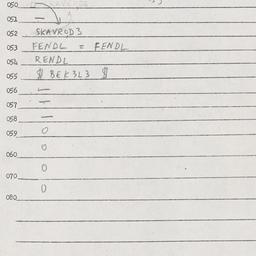 050
051 —
052 SKAVROD3
053 FENDL = FENDL
054 RENDL
055 $ BEK3L3 $
056 —
057 —
058 —
059 0
0
060
0
070
0
080